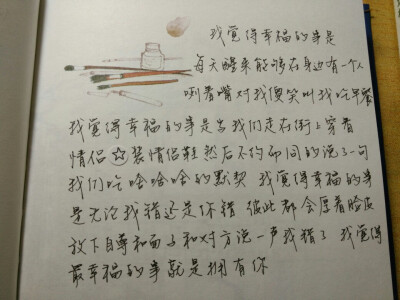 我觉得幸福的事是
每天醒来能够在身边有一个人
咧着嘴对我傻笑叫我吃早餐
我觉得幸福的事是当我们走在街上穿着
情侣☆装情侣鞋然后不约而同的说了一句
我们吃啥啥啥的默契 我觉得幸福的事
是无论我错还是你错 彼此都会厚着脸皮
放下自尊和面子和对方说一声我错了 我觉得
最幸福的事就是拥有你